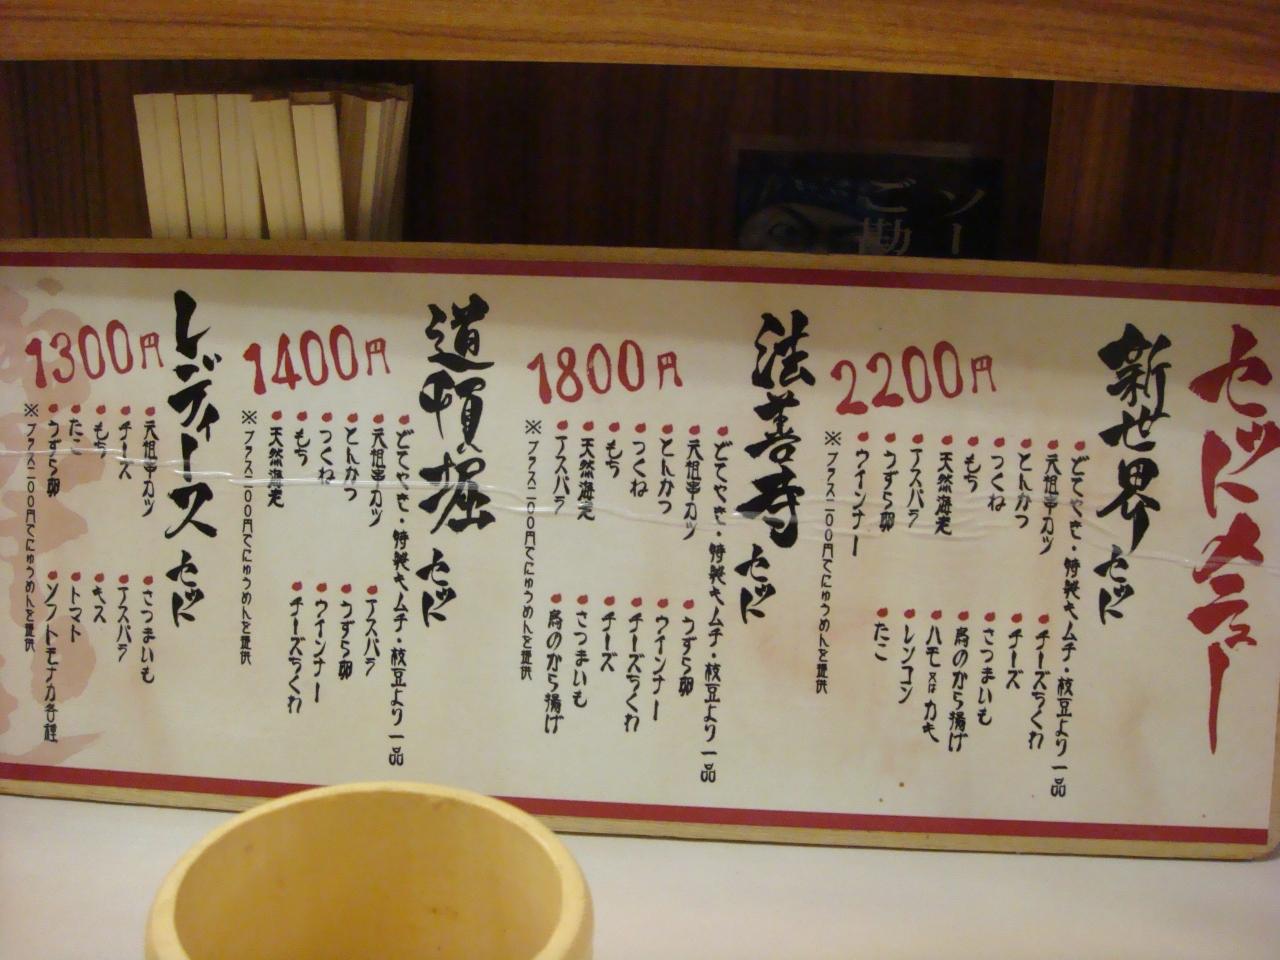 ソー
ご勘
セットメニュー
新世界 セット
2200円
どてやき・特製キムチ・枝豆より一品
元祖串カツ
とんかつ
つくね
もち
天然海老
アスパラ
うずら卵
ウインナー
チーズちくわ
チーズ
さつまいも
鳥のから揚げ
ハモ又はカキ
レンコン
たこ
※プラス二〇〇円でにゅうめんを提供
法善寺 セット
1800円
どてやき・特製キムチ・枝豆より一品
元祖串カツ
とんかつ
つくね
もち
天然海老
アスパラ
うずら卵
ウインナー
チーズちくわ
チーズ
さつまいも
鳥のから揚げ
※プラス二〇〇円でにゅうめんを提供
道頓堀 セット
1400円
どてやき・特製キムチ・枝豆より一品
元祖串カツ
とんかつ
つくね
もち
天然海老
アスパラ
うずら卵
ウインナー
チーズちくわ
※プラス二〇〇円でにゅうめんを提供
レディース セット
1300円
元祖串カツ
チーズ
もち
たこ
うずら卵
さつまいも
アスパラ
キス
トマト
ソフトモナカ各種
※プラス二〇〇円でにゅうめんを提供